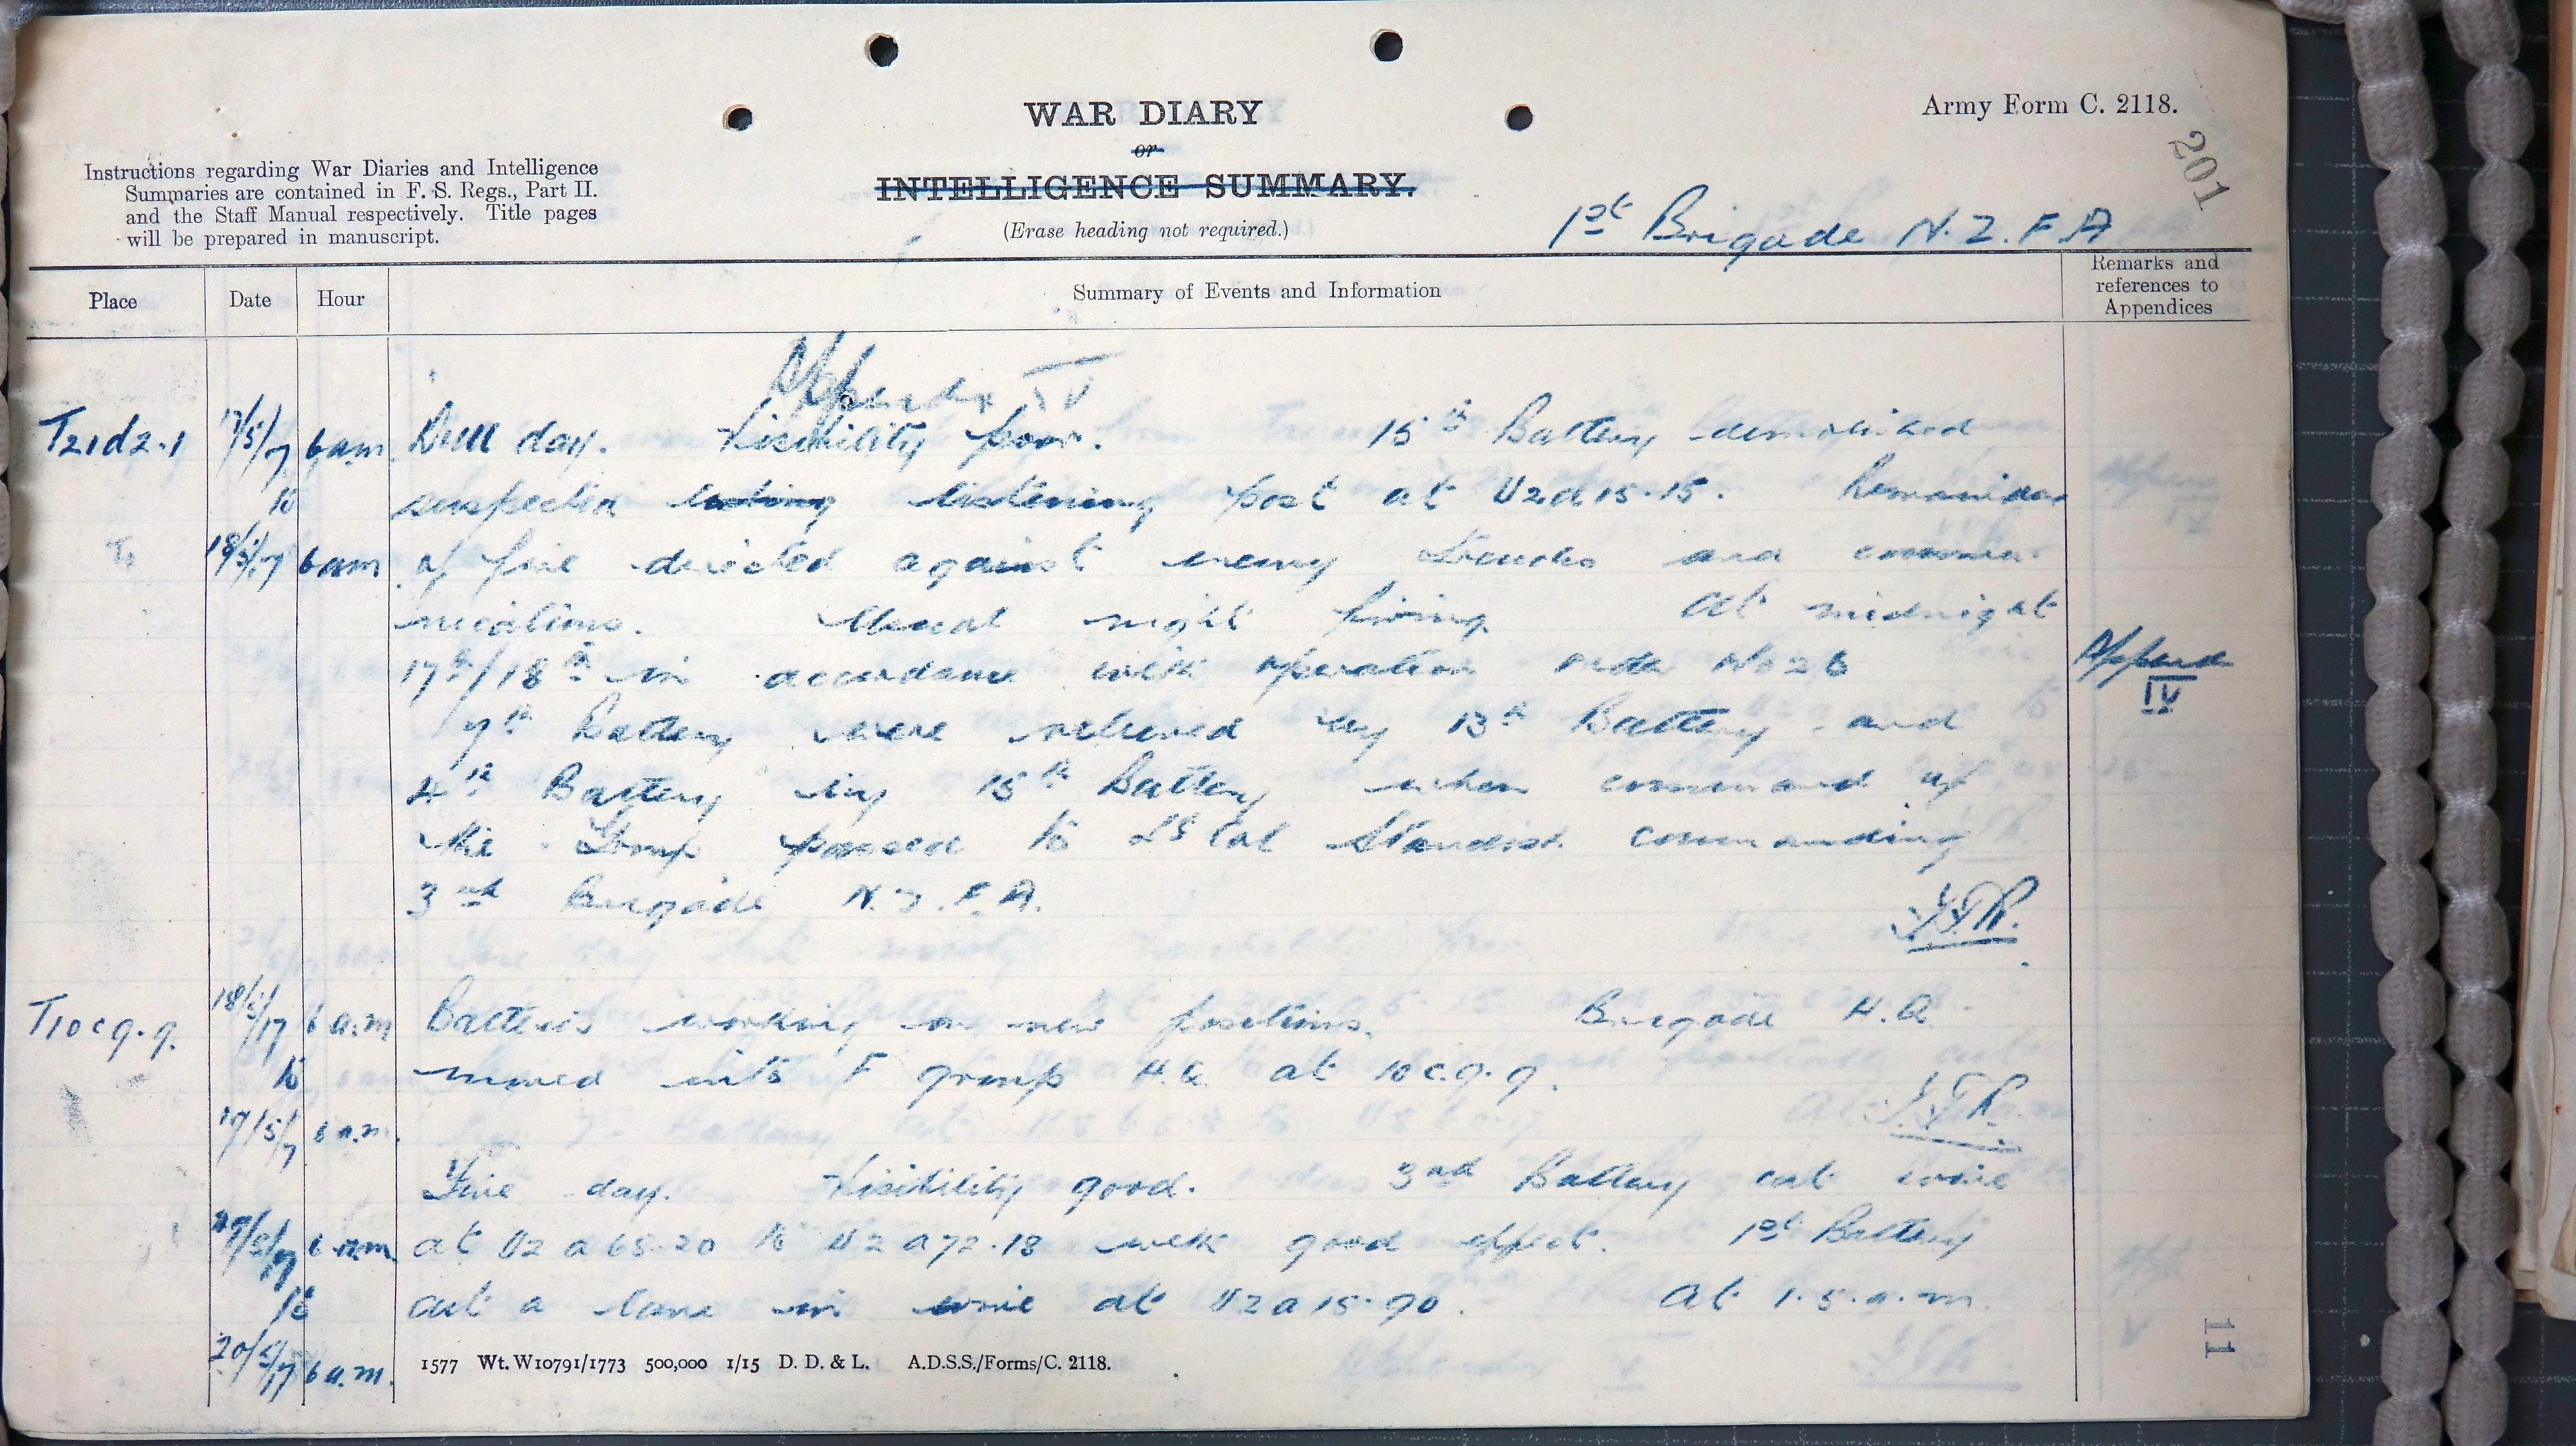 WAR DIARY
or
INTELLIGENCE SUMMARY.
(Erase heading not required.)
Army Form C. 2118.
201
Instructions regarding War Diaries and Intelligence
Summaries are contained in F. S. Regs., Part II.
and the Staff Manual respectively. Title pages
will be prepared in manuscript.
1st Brigade N.Z.F.A
Place Date Hour Summary of Events and Information Remarks and references to Appendices
Appendix IV
T21d2.1 17/5/17 6am Dull day. Visibility poor. 15th Battery demolished
to suspected listing listening post at U2d15.15. Remainder
18/5/17 6am of fire directed against enemy trenches and commu-
nications. Usual night firing. At midnight
17th/18th in accordance with operation order No 26
Append IV
7th Battery were relieved by 13th Battery and
4th Battery by 15th Battery when command of
the Group passed to Lt Col Standish commanding
3rd Brigade N.Z.F.A.
T10c9.9. 18/5/17 6 a.m Batteries working on new positions. Brigade H.Q.
to moved into F group H.Q. at 10c.9.9.
19/5/17 6 a.m.
Fine day. Visibility good. 3rd Battery cut wire
19/5/17 6 am at U2a65.20 to U2a72.18 with good effect. 1st Battery
to cut a lane in wire at U2a15.90. At 1.5.a.m.
20/5/17 6 a.m.
1577 Wt. W10791/1773 500,000 1/15 D. D. & L. A.D.S.S./Forms/C. 2118.
11